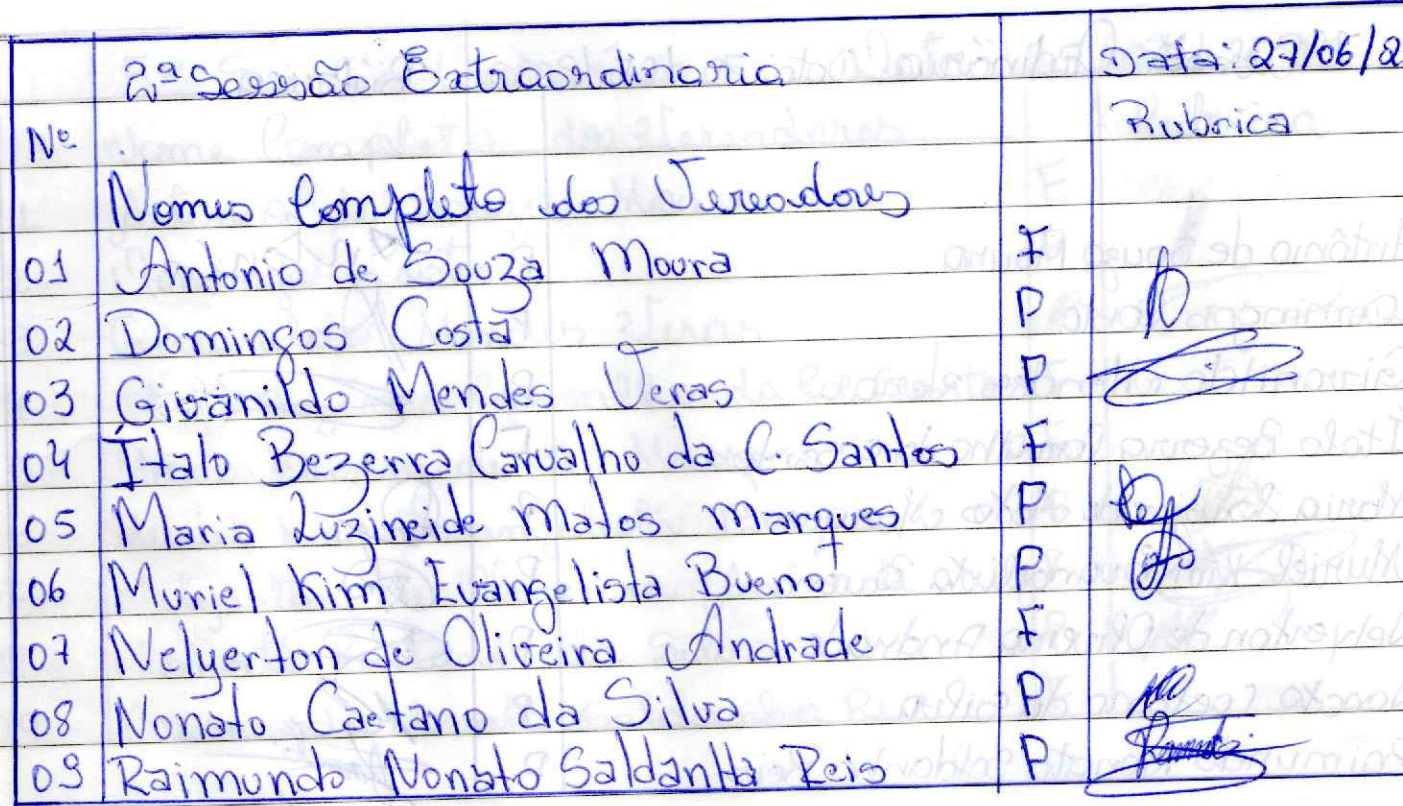 2ª Sessão Extraordinaria Data: 27/06/2
Nº Rubrica
Nomes Completo dos Vereadores
01 Antonio de Souza Moura F
02 Domingos Costa P
03 Givanildo Mendes Veras P
04 Ítalo Bezerra Carvalho da C. Santos F
05 Maria Luzineide Matos Marques P
06 Muriel Kim Evangelista Bueno P
07 Nelyerton de Oliveira Andrade F
08 Nonato Caetano da Silva P
09 Raimundo Nonato Saldanha Reis P